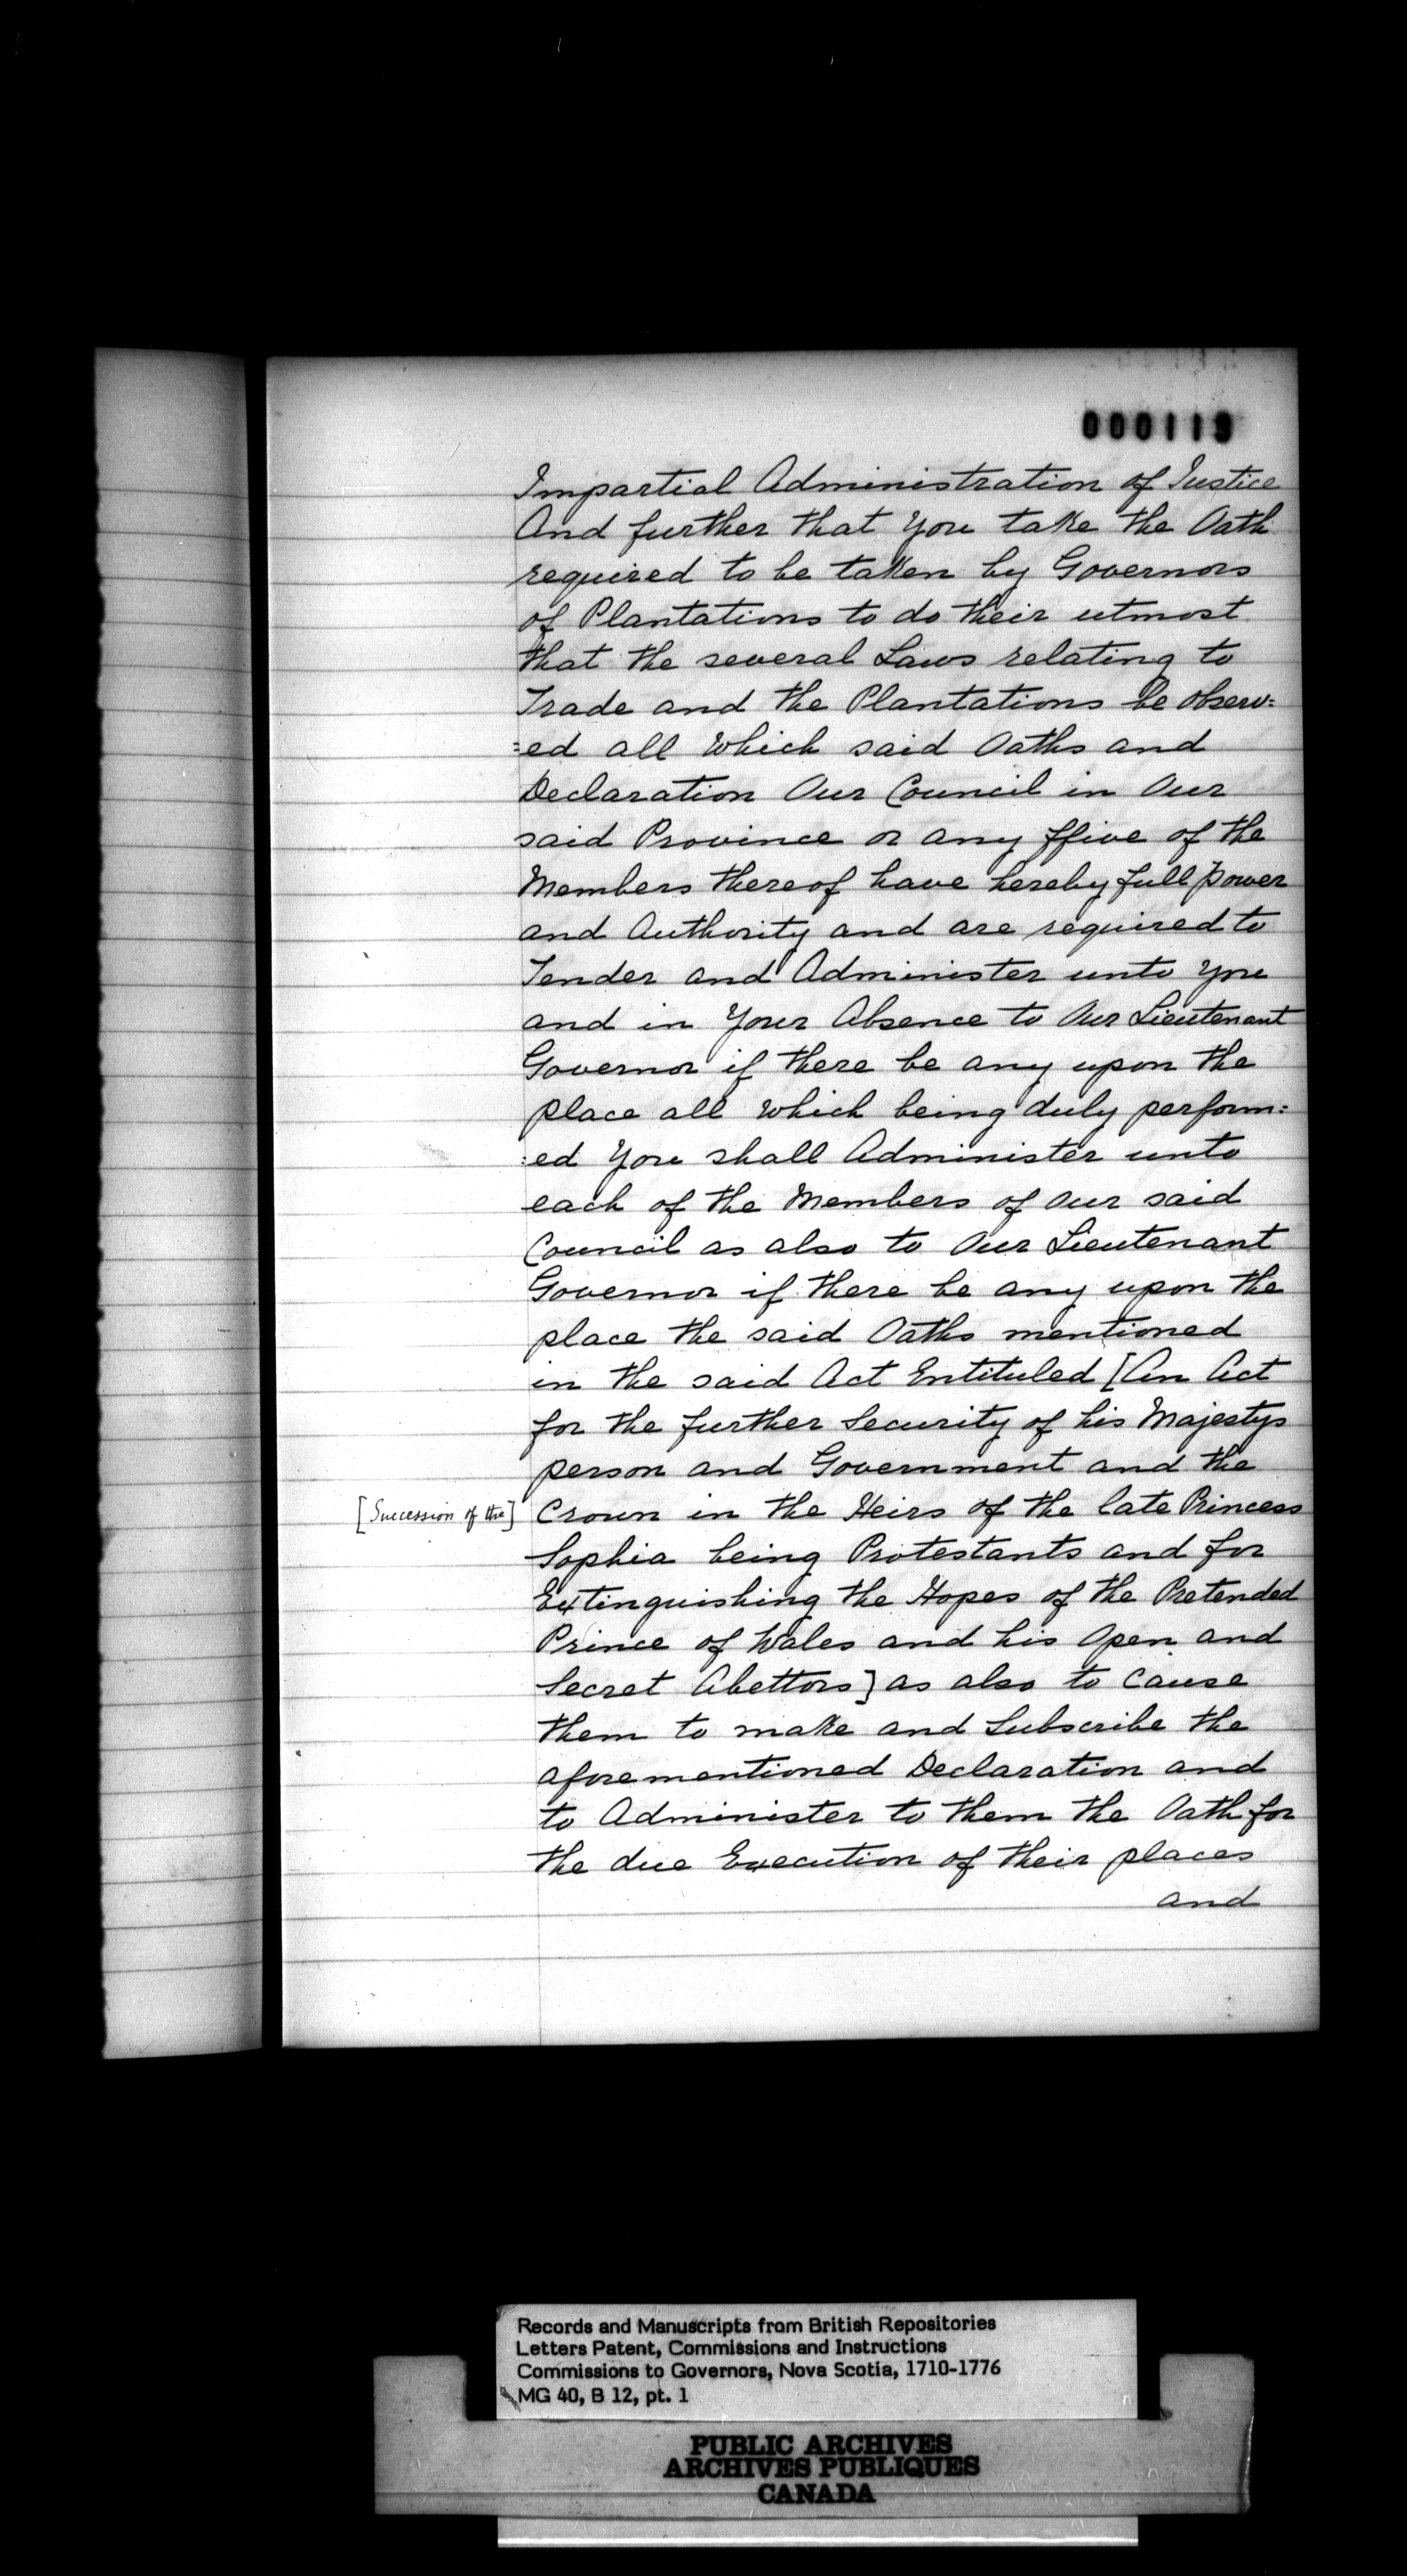 000113
Impartial Administration of Justice
And further that you take the Oath
required to be taken by Governors
of Plantations to do their utmost
that the several Laws relating to
Trade and the Plantations be observ:
:ed all which said Oaths and
Declaration Our Council in Our
said Province or any ffive of the
Members thereof have hereby full power
and Authority and are required to
Tender and Administer unto you
and in Your Absence to Our Lieutenant
Governor if there be any upon the
place all which being duly perform:
:ed You shall Administer unto
each of the Members of Our said
Council as also to Our Lieutenant
Governor if there be any upon the
place the said Oaths mentioned
in the said Act Entituled [An Act
for the further Security of his Majestys
person and Government and the
[Succession of the] Crown in the Heirs of the late Princess
Sophia being Protestants and for
Extinguishing the Hopes of the Pretended
Prince of Wales and his Open and
Secret Abettors] as also to cause
them to make and Subscribe the
aforementioned Declaration and
to Administer to them the Oath for
the due Execution of their places
and
Records and Manuscripts from British Repositories
Letters Patent, Commissions and Instructions
Commissions to Governors, Nova Scotia, 1710-1776
MG 40, B 12, pt. 1
PUBLIC ARCHIVES
ARCHIVES PUBLIQUES
CANADA